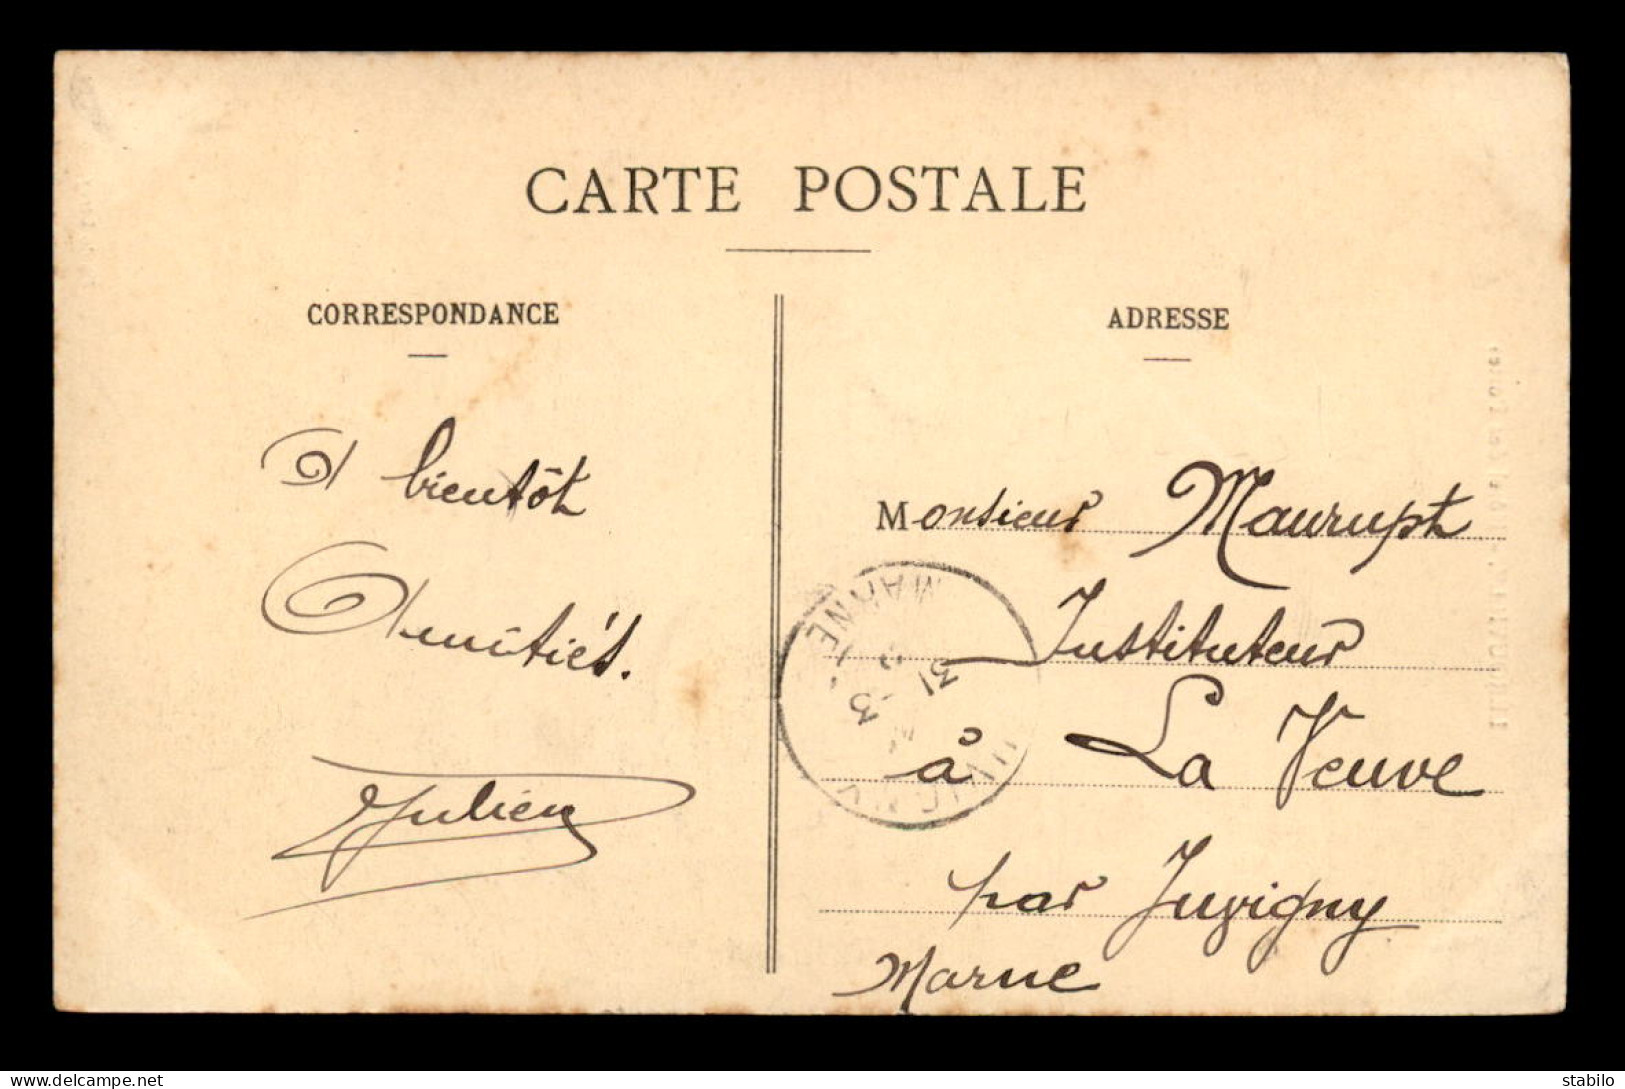 CARTE POSTALE
CORRESPONDANCE
A bientôt
Amitiés.
Julien
ADRESSE
Monsieur Maurupt
Instituteur
à La Veuve
par Juvigny
Marne
MARNE
31
JUVIGNY
www.delcampe.net
stabilo